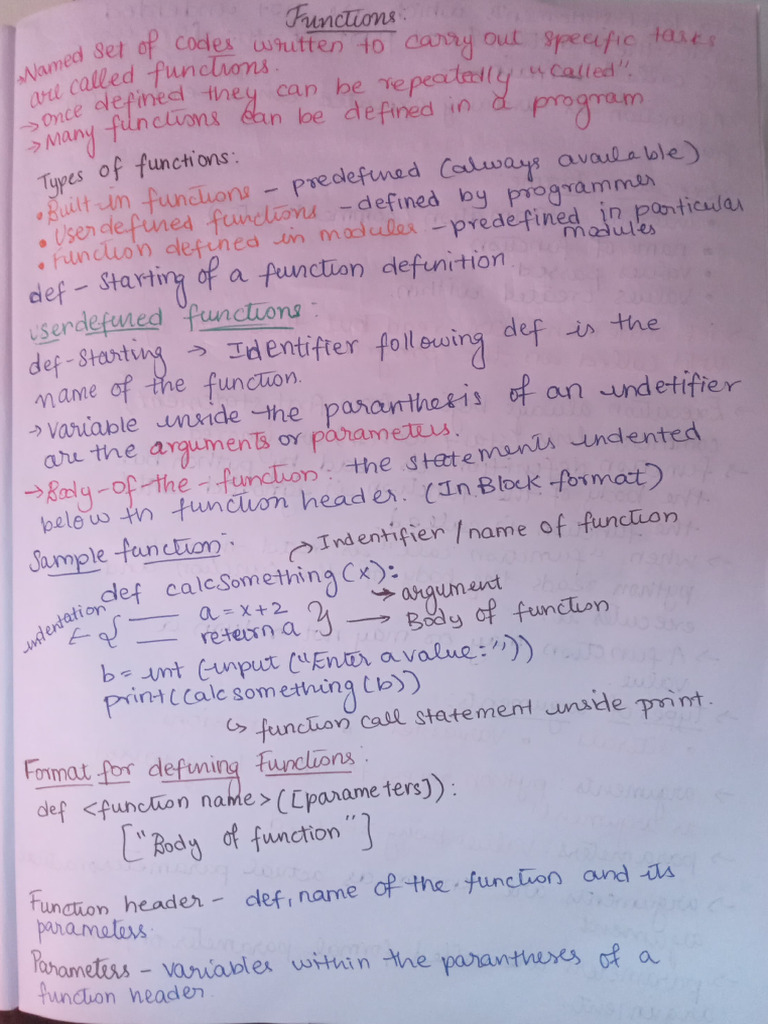 Functions.
→Named set of codes written to carry out specific tasks
are called functions.
→once defined they can be repeatedly "called".
→Many functions can be defined in a program
Types of functions:
•Built-in functions – predefined (always available)
•Userdefined functions – defined by programmer
•Function defined in modules – predefined in particular
modules
def – starting of a function definition.
userdefined functions:
def-starting → Identifier following def is the
name of the function.
→variable inside the paranthesis of an indetifier
are the arguments or parameters.
→Body-of-the-function: the statements indented
below th function header. (In Block format)
Sample function:
→Indentifier / name of function
def calcsomething(x):
→argument
indentation
← { — a = x+2
— return a } → Body of function
b = int (input ("Enter a value:"))
print(calcsomething(b))
↳ function call statement inside print.
Format for defining Functions:
def <function name>([parameters]):
["Body of function"]
Function header – def, name of the function and its
parameters.
Parameters – variables within the parantheses of a
function header.